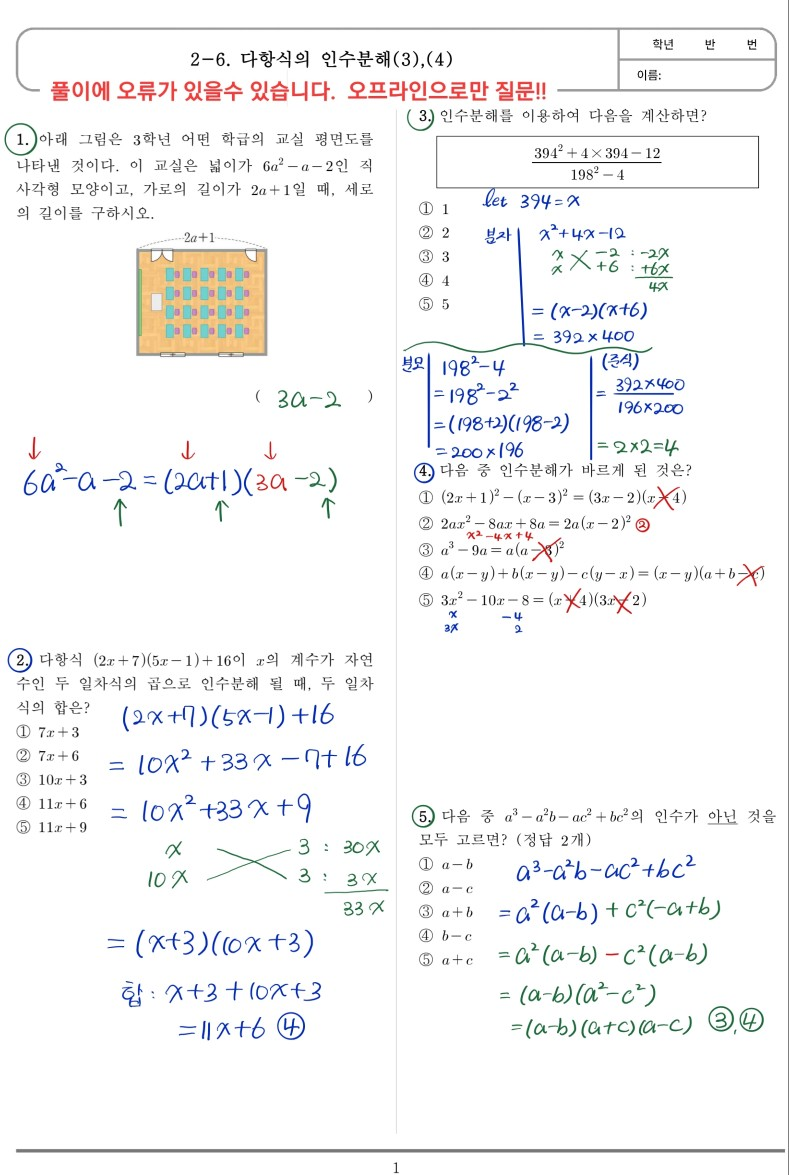 2-6. 다항식의 인수분해(3),(4)
학년 반 번
이름:
풀이에 오류가 있을수 있습니다. 오프라인으로만 질문!!
1. 아래 그림은 3학년 어떤 학급의 교실 평면도를
나타낸 것이다. 이 교실은 넓이가 6a²-a-2인 직
사각형 모양이고, 가로의 길이가 2a+1일 때, 세로
의 길이를 구하시오.
2a+1
( 3a-2 )
6a²-a-2=(2a+1)(3a-2)
2. 다항식 (2x+7)(5x-1)+16이 x의 계수가 자연
수인 두 일차식의 곱으로 인수분해 될 때, 두 일차
식의 합은?
① 7x+3
② 7x+6
③ 10x+3
④ 11x+6
⑤ 11x+9
(2x+7)(5x-1)+16
= 10x²+33x-7+16
= 10x²+33x+9
x 3 : 30x
10x 3 : 3x
33x
= (x+3)(10x+3)
합 : x+3+10x+3
=11x+6 ④
3. 인수분해를 이용하여 다음을 계산하면?
394²+4×394-12
198²-4
① 1
② 2
③ 3
④ 4
⑤ 5
let 394=x
분자 x²+4x-12
x -2 : -2x
x +6 : +6x
4x
= (x-2)(x+6)
= 392×400
분모 198²-4
=198²-2²
=(198+2)(198-2)
=200×196
(준식)
= 392×400
196×200
=2×2=4
4. 다음 중 인수분해가 바르게 된 것은?
① (2x+1)²-(x-3)²=(3x-2)(x-4)
② 2ax²-8ax+8a=2a(x-2)² ②
x²-4x+4
③ a³-9a=a(a-3)²
④ a(x-y)+b(x-y)-c(y-x)=(x-y)(a+b-c)
⑤ 3x²-10x-8=(x+4)(3x-2)
x -4
3x 2
5. 다음 중 a³-a²b-ac²+bc²의 인수가 아닌 것을
모두 고르면? (정답 2개)
① a-b
② a-c
③ a+b
④ b-c
⑤ a+c
a³-a²b-ac²+bc²
=a²(a-b)+c²(-a+b)
=a²(a-b)-c²(a-b)
=(a-b)(a²-c²)
=(a-b)(a+c)(a-c) ③,④
1